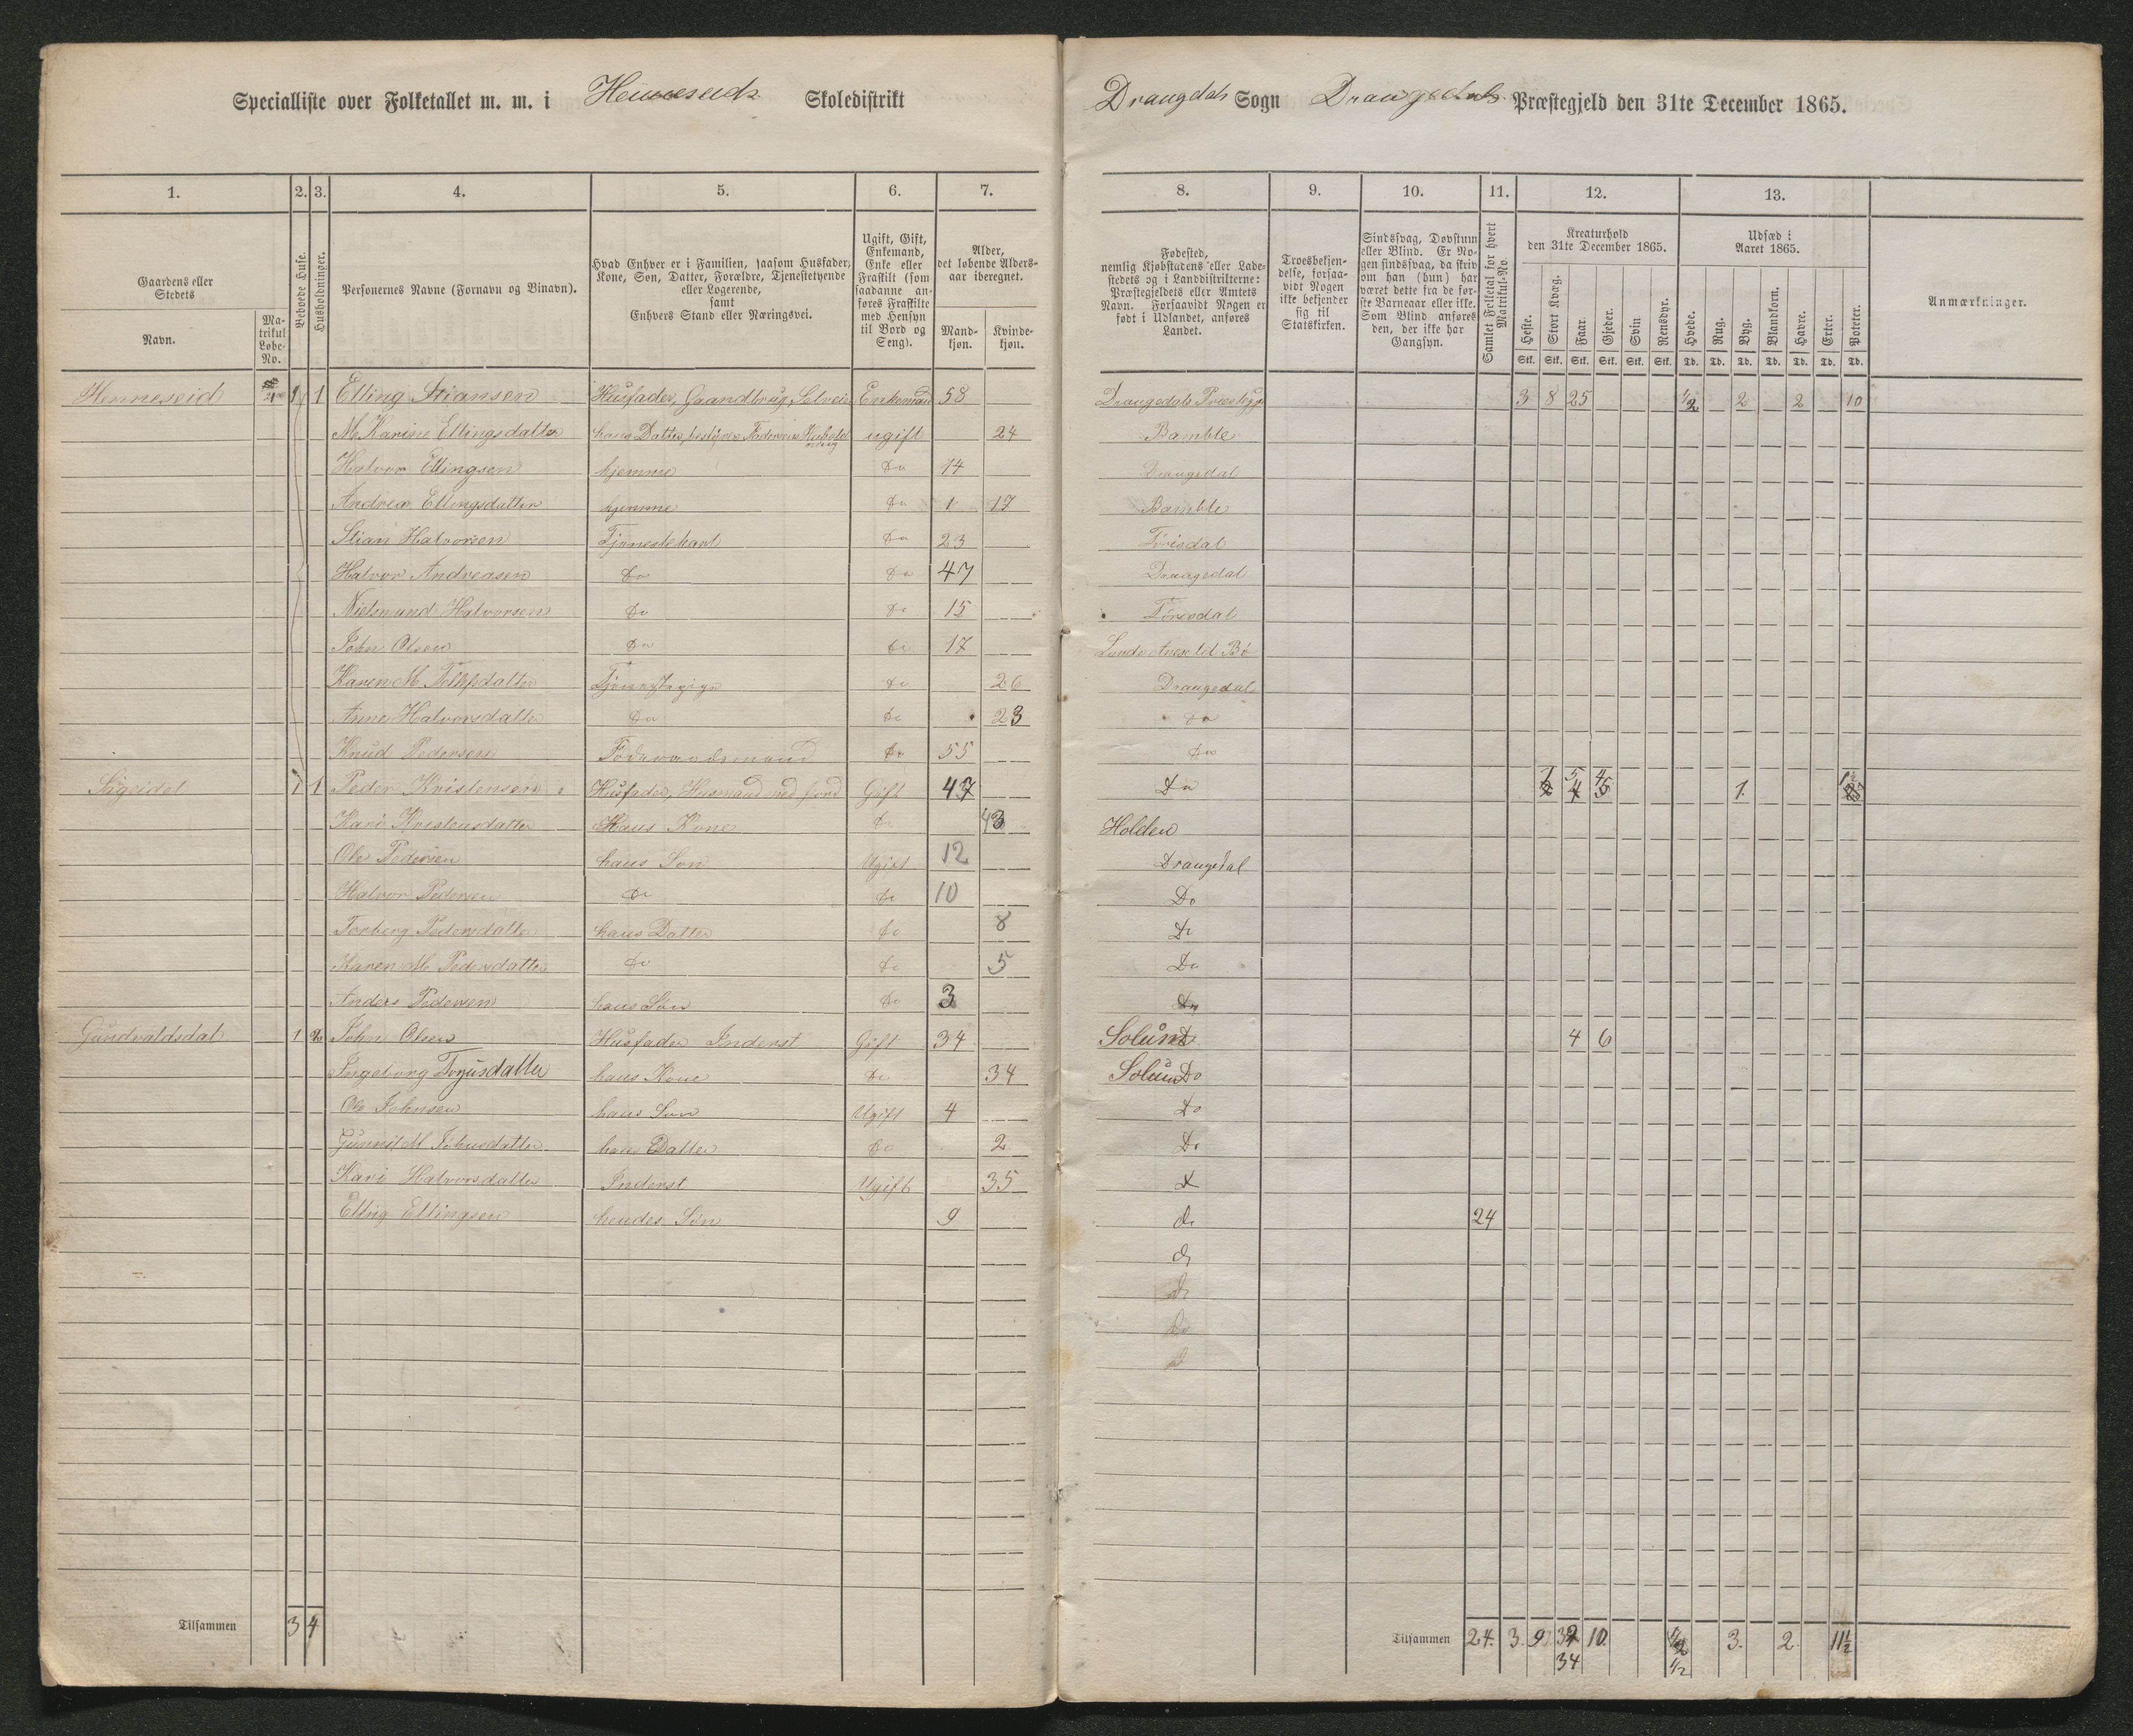 Specialliste over Folketallet m. m. i Henneseids Skoledistrikt Drangdals Sogn Drangedals Præstegjeld den 31te December 1865.
1. 2. 3. 4. 5. 6. 7. 8. 9. 10. 11. 12. 13.
Gaardens eller Stedets
Navn.
Matrikul Løbe-No.
Beboede Huse.
Husholdninger.
Personernes Navne (Fornavn og Binavn).
Hvad Enhver er i Familien, saasom Husfader, Kone, Søn, Datter, Forældre, Tjenestetyende eller Logerende, samt Enhvers Stand eller Næringsvei.
Ugift, Gift, Enkemand, Enke eller Fraskilt (som saadanne anføres Fraskilte med Hensyn til Bord og Seng).
Alder, det løbende Alders-aar iberegnet.
Mand-kjøn. Kvinde-kjøn.
Fødested, nemlig Kjøbstadens eller Ladestedets og i Landdistrikterne: Præstegjeldets eller Amtets Navn. Forsaavidt Nogen er født i Udlandet, anføres Landet.
Troesbekjendelse, forsaavidt Nogen ikke bekjender sig til Statskirken.
Sindssvag, Døvstum eller Blind. Er Nogen sindssvag, da skriv om han (hun) har været dette fra de første Barneaar eller ikke. Som Blind anføres den, der ikke har Gangsyn.
Samlet Folketal for hvert Matrikul-No.
Kreaturhold den 31te December 1865.
Heste. Stort Kvæg. Faar. Gjeder. Svin. Rensdyr.
Stk. Stk. Stk. Stk. Stk. Stk.
Udsæd i Aaret 1865.
Hvede. Rug. Byg. Blandkorn. Havre. Erter. Poteter.
Td. Td. Td. Td. Td. Td. Td.
Anmærkninger.
Henneseid 1 1 Elling Stiansen Husfader, Gaardbrug, Selveie Enkemand 58 Drangedals Præstegj 3 8 25 1/2 2 2 10
M. Karine Ellingsdatter hans Datter, bestyrer Faderens Husholdning ugift 24 Bamble
Halvor Ellingsen hjemme Do 14 Drangedal
Andrea Ellingsdatter hjemme Do 1 17 Bamble
Stian Halvorsen Tjenestekarl Do 23 Tørisdal
Halvor Andreasen Do Do 47 Drangedal
Nielsmund Halvorsen Do Do 15 Tørisdal
John Olsen Do Do 17 Lunde Annex til Bø
Karen M. Tjenestepige Do 26 Drangedal
Anne Halvorsdatter Do Do 23 Do
Knud Pedersen Føderaadsmand Do 55 Do
Sigeidet 1 1 Peder Kristensen Husfader, Husmand med Jord Gift 47 Do 1 5 4 1 1 1/2
Kari Kristensdatter Hans Kone Do 43 Holden
Ole Pedersen hans Søn Ugift 12 Drangedal
Halvor Pedersen Do Do 10 Do
Torberg Pedersdatter hans Datter Do 8 Do
Karen M. Pedersdatter Do Do 5 Do
Anders Pedersen hans Søn Do 3 Do
Gundvaldsdal 1 2 John Olsen Husfader Inderst Gift 34 Solum 4 6
Ingeborg Torjusdatter hans Kone Do 34 Solum Do
Ole Johnsen hans Søn Ugift 4 Do
Gunnil M. Johnsdatter hans Datter Do 2 Do
Kari Halvorsdatter Inderst Ugift 35 Do
Elling Ellingsen hendes Søn 9 do 24
do
Do
Do
Tilsammen 3 4 Tilsammen 24. 3. 9 34 10. 1/2 3. 2. 11 1/2